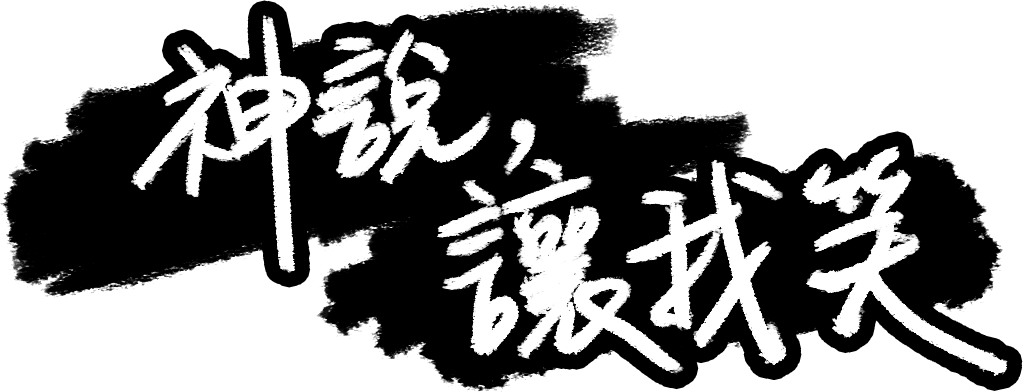 神說，
讓我笑